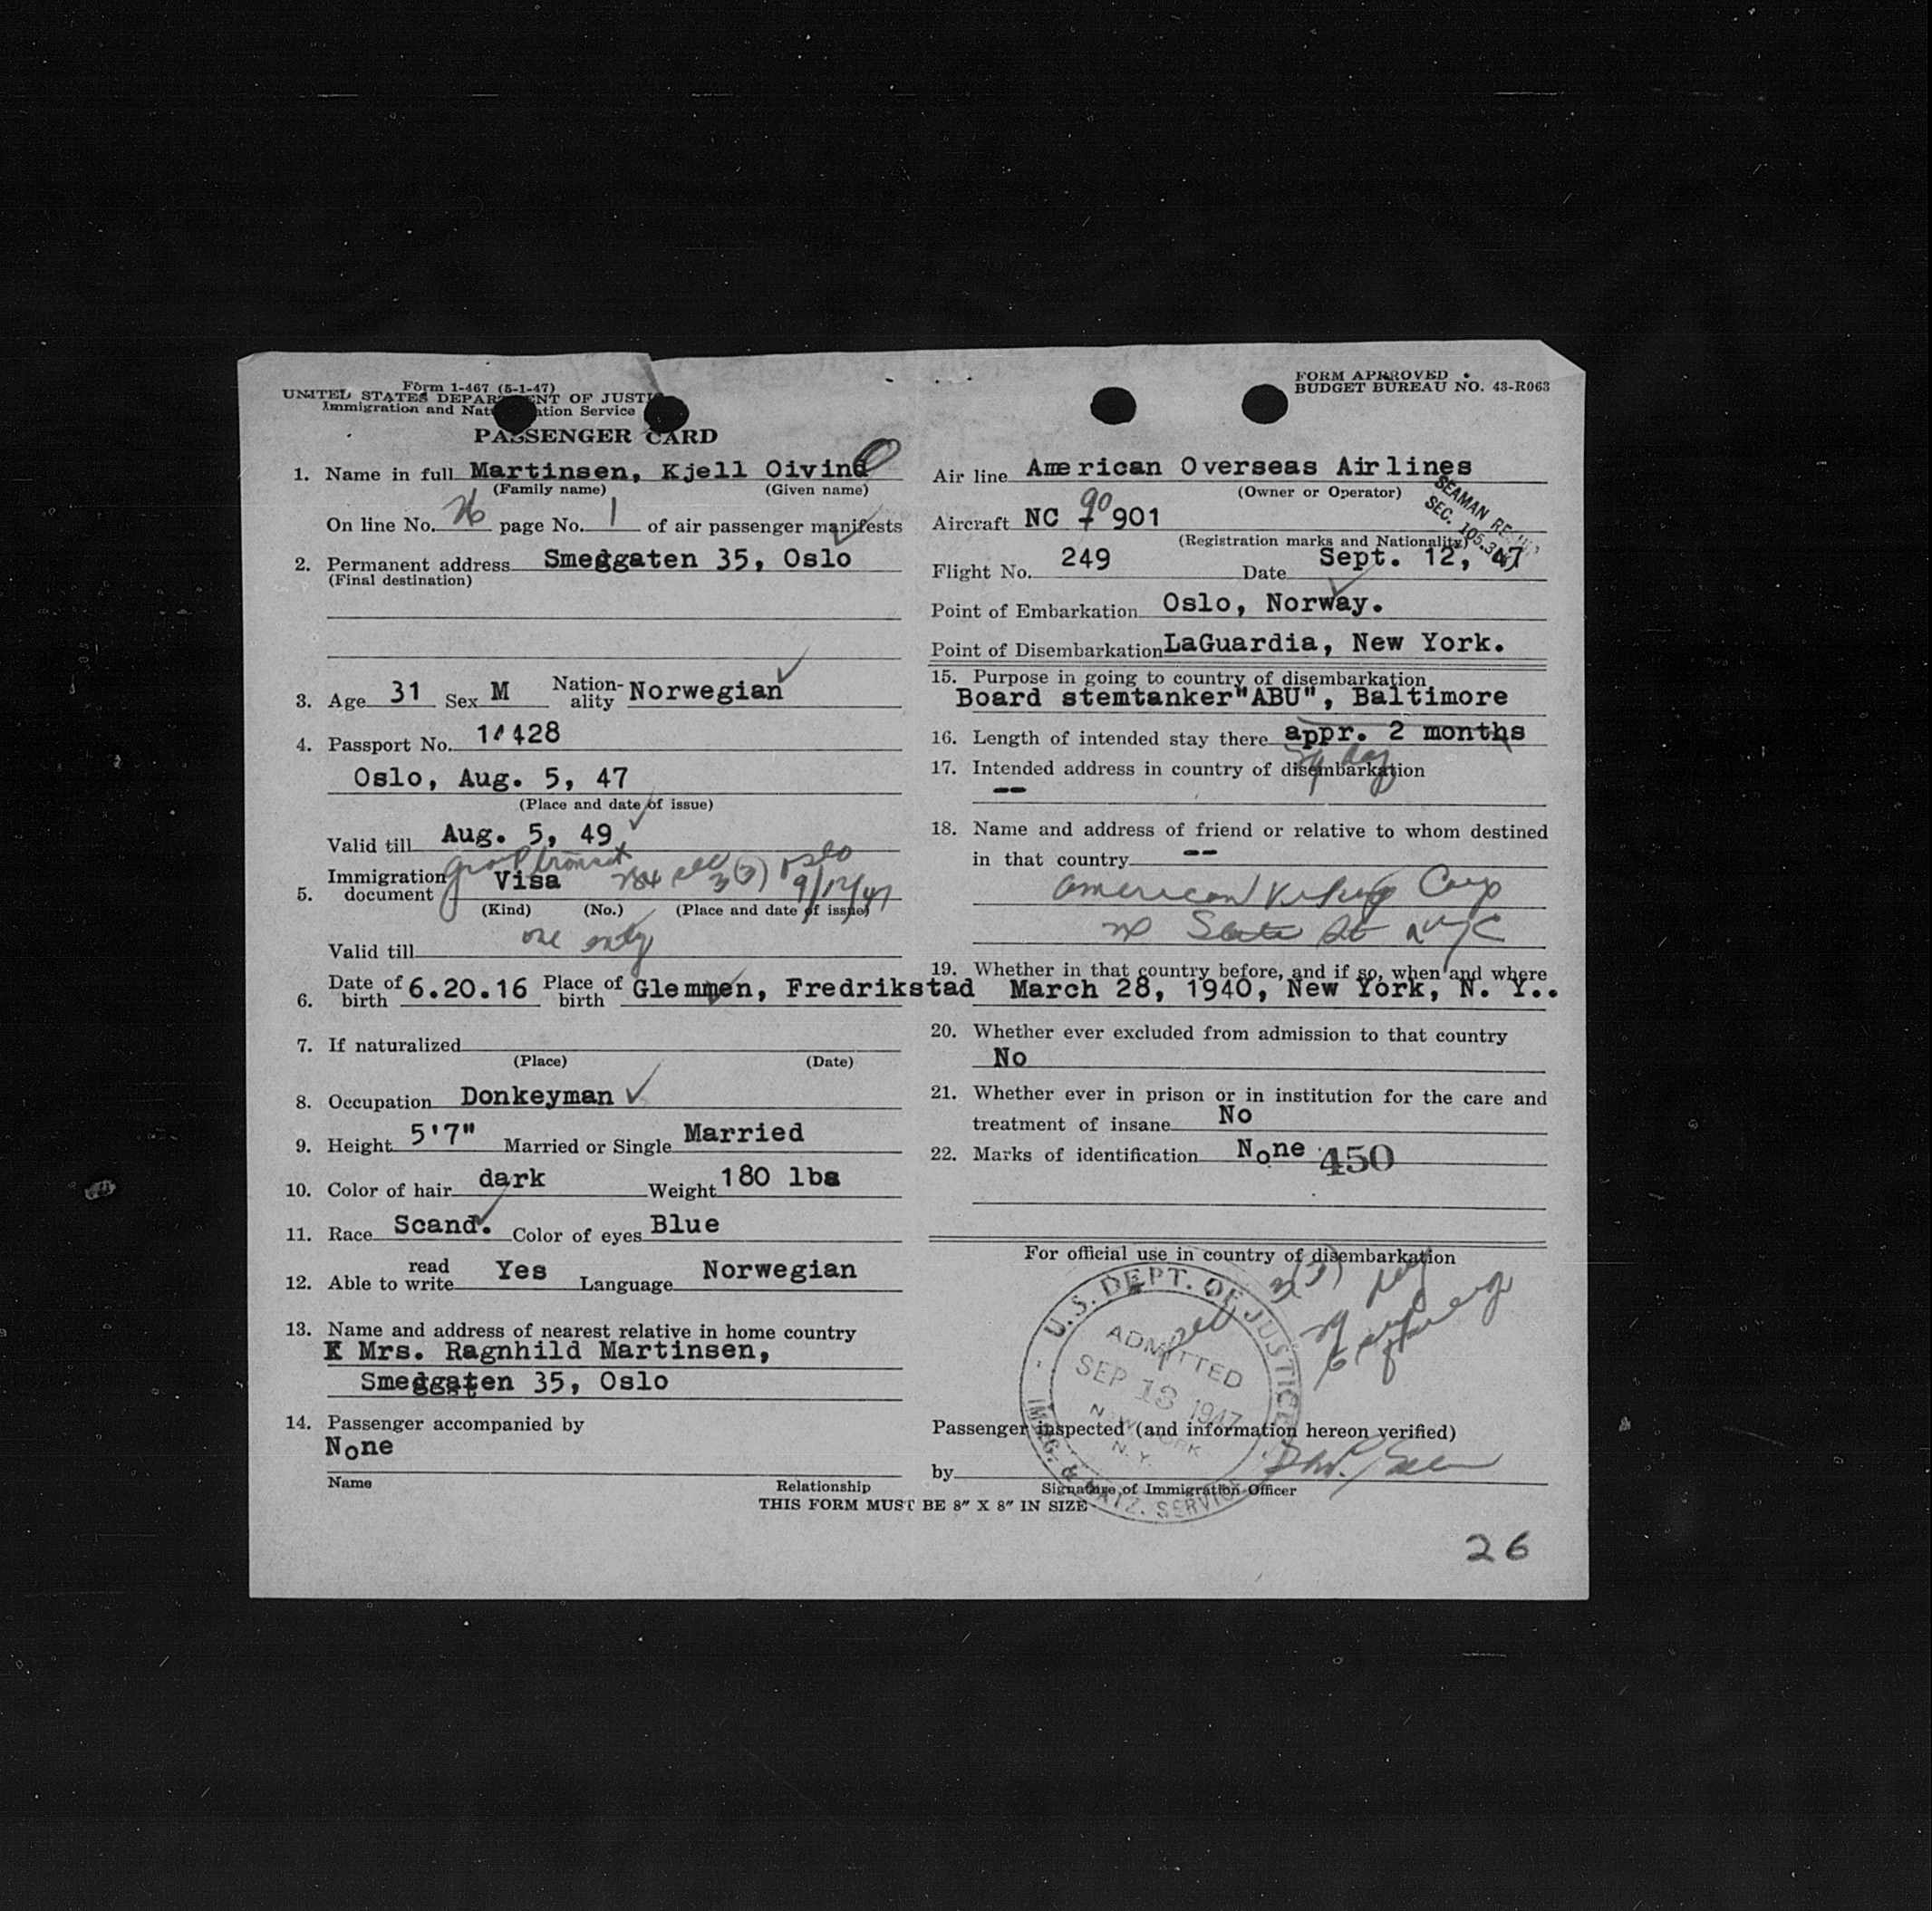 Form 1-467 (5-1-47)
UNITED STATES DEPARTMENT OF JUSTI
Immigration and Natu ation Service
PASSENGER CARD
FORM APPROVED
BUDGET BUREAU NO. 43-R063
1. Name in full Martinsen, Kjell Oivind
(Family name) (Given name)
On line No. 26 page No. 1 of air passenger manifests
2. Permanent address Smedgaten 35, Oslo
(Final destination)
3. Age 31 Sex M Nation-ality Norwegian
4. Passport No. 11428
Oslo, Aug. 5, 47
(Place and date of issue)
Valid till Aug. 5, 49
group transit
5. Immigration document Visa 3(3) Oslo 9/12/47
(Kind) (No.) (Place and date of issue)
one entry
Valid till
6. Date of birth 6.20.16 Place of birth Glemmen, Fredrikstad
7. If naturalized
(Place) (Date)
8. Occupation Donkeyman
9. Height 5'7" Married or Single Married
10. Color of hair dark Weight 180 lbs
11. Race Scand. Color of eyes Blue
12. Able to read write Yes Language Norwegian
13. Name and address of nearest relative in home country
Mrs. Ragnhild Martinsen,
Smedgaten 35, Oslo
14. Passenger accompanied by
None
Name Relationship
THIS FORM MUST BE 8" X 8" IN SIZE
Air line American Overseas Airlines
(Owner or Operator)
SEAMAN
SEC. 105.3
Aircraft NC 90 901
(Registration marks and Nationality)
Flight No. 249 Date Sept. 12, 47
Point of Embarkation Oslo, Norway.
Point of Disembarkation LaGuardia, New York.
15. Purpose in going to country of disembarkation
Board stemtanker"ABU", Baltimore
16. Length of intended stay there appr. 2 months
29 day
17. Intended address in country of disembarkation
--
18. Name and address of friend or relative to whom destined
in that country --
American Corp
State St NYC
19. Whether in that country before, and if so, when and where
March 28, 1940, New York, N. Y..
20. Whether ever excluded from admission to that country
No
21. Whether ever in prison or in institution for the care and
treatment of insane No
22. Marks of identification None 450
For official use in country of disembarkation
3(3)
U.S. DEPT. OF JUSTICE
ADMITTED
SEP 13 1947
NEW YORK
N. Y.
IMMIG. & NATZ. SERVICE
Passenger inspected (and information hereon verified)
by
Signature of Immigration Officer
26